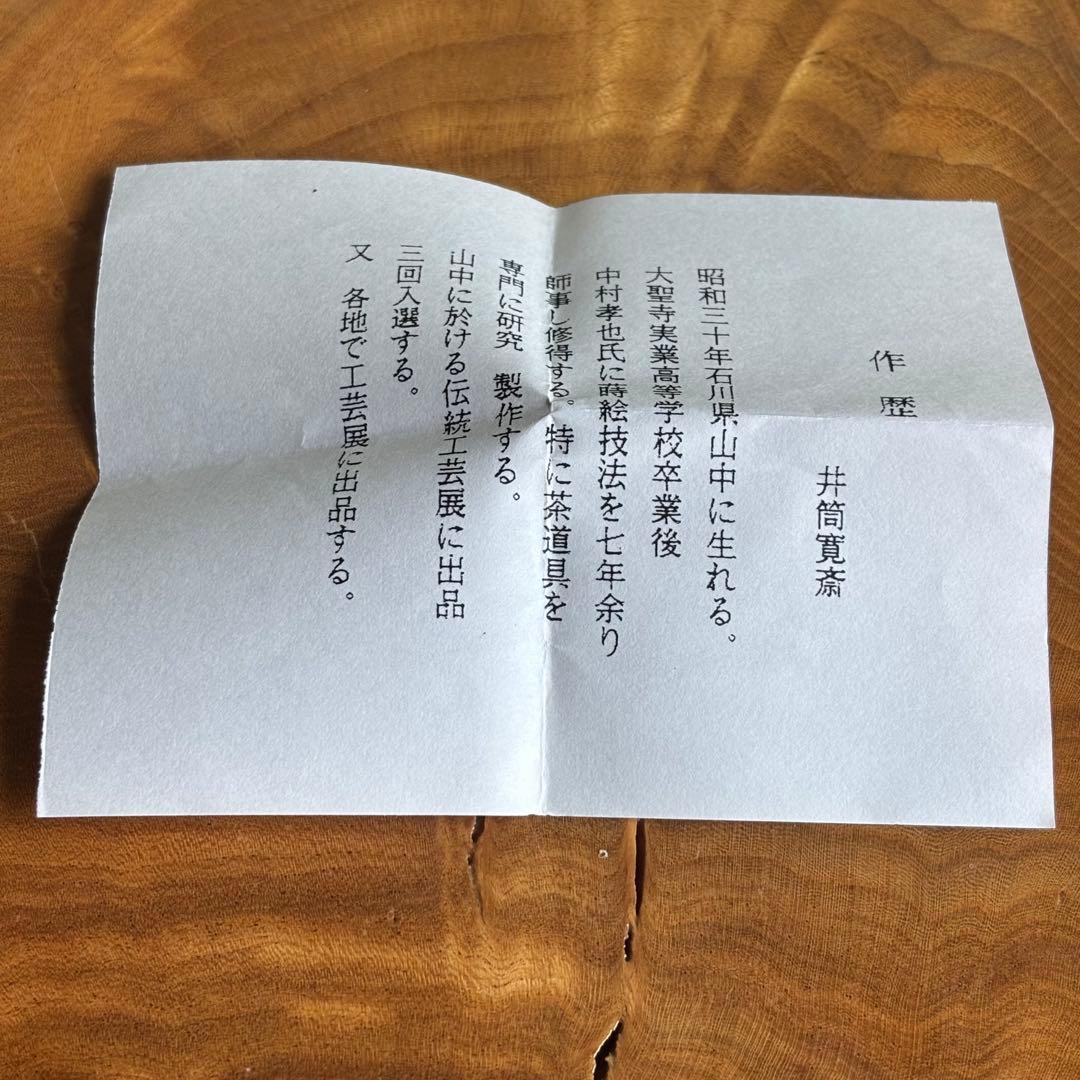 作歴
井筒寛斎
昭和三十年石川県山中に生れる。
大聖寺実業高等学校卒業後
中村孝也氏に蒔絵技法を七年余り
師事し修得する。特に茶道具を
専門に研究　製作する。
山中に於ける伝統工芸展に出品
三回入選する。
又　各地で工芸展に出品する。